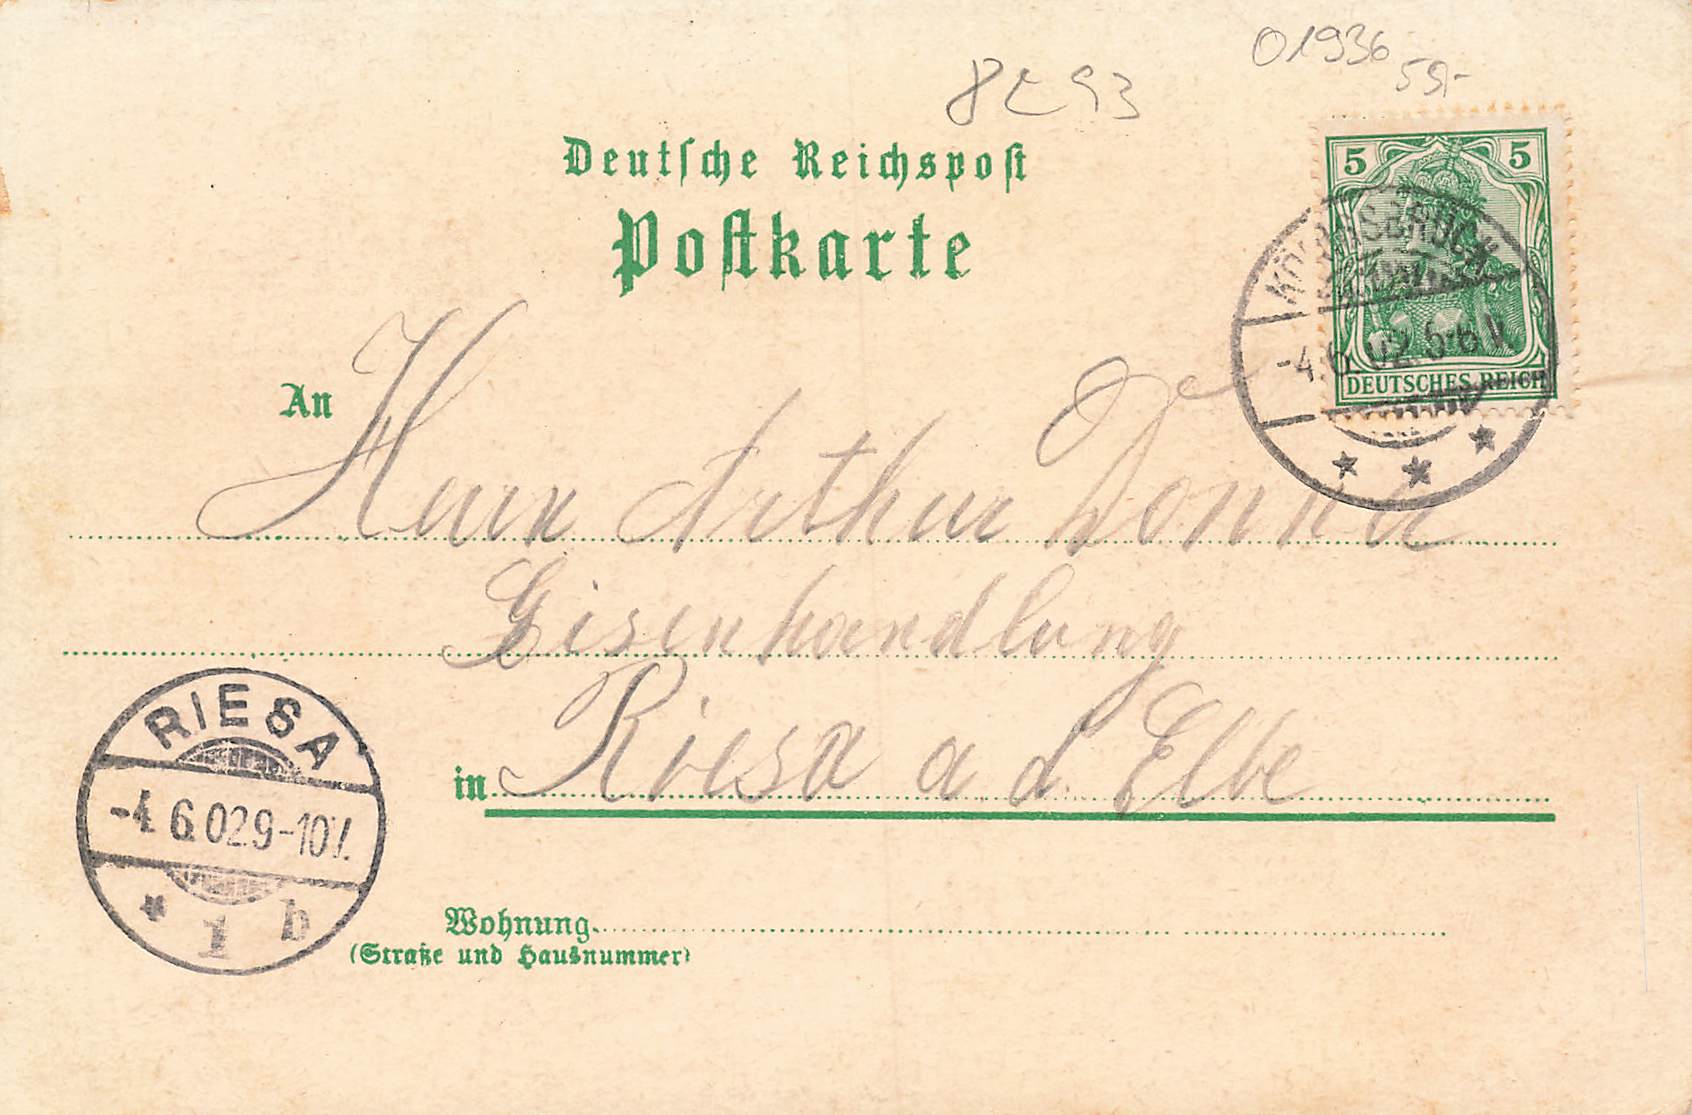 01936
59,-
8293
Deutsche Reichspost
Postkarte
5 5
DEUTSCHES REICH
KÖNIGSBRÜCK
-4.6.02.5-6V.
* * *
An Herrn Arthur Donner
Eisenhandlung
in Riesa a. d. Elbe
RIESA
-4.6.02.9-10V.
* 1 b
Wohnung
(Straße und Hausnummer)